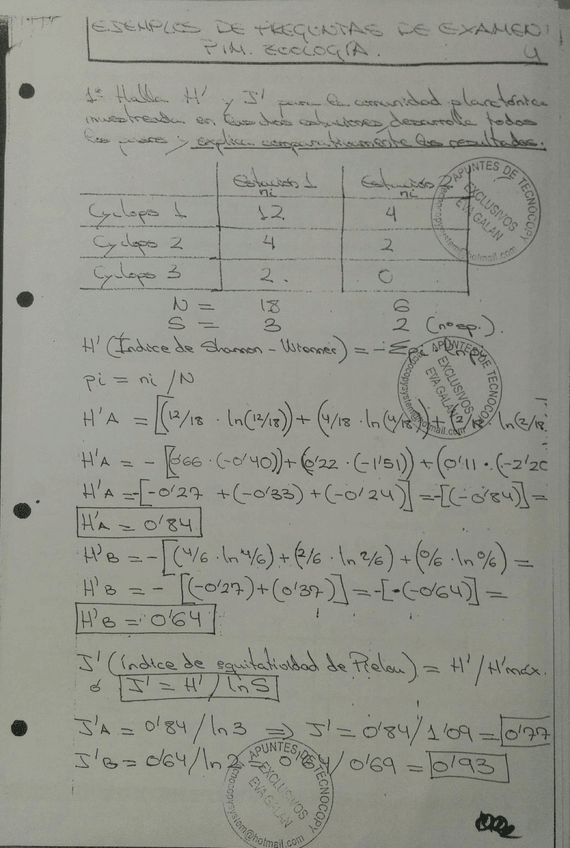 EJEMPLOS DE PREGUNTAS DE EXAMEN
TIM. ECOLOGÍA.
4
1ª Halla H' y J' para la comunidad planctónica
muestreada en las dos estaciones, desarrolla todos
los pasos y explica comparativamente los resultados.
Estación 1 Estación 2
ni ni
Cyclops 1 12 4
Cyclops 2 4 2
Cyclops 3 2. 0
N = 18 6
S = 3 2 (nº sp.).
H' (Índice de Shannon-Wienner) = -Σpi
pi = ni /N
H'A = [(12/18 · ln(12/18)) + (4/18 · ln(4/18)) + ln(2/18
H'A = - [0'66 · (-0'40)) + (0'22 · (-1'51)) + (0'11 · (-2'20
H'A = -[-0'27 + (-0'33) + (-0'24)] = -[(-0'84)] =
H'A = 0'84
H'B = -[(4/6 · ln 4/6) + (2/6 · ln 2/6) + (0/6 · ln 0/6) =
H'B = - [(-0'27) + (0'37)] = -[-(-0'64)] =
H'B = 0'64
J' (índice de equitatividad de Pielou) = H' / H'máx.
ó J' = H' / lnS
J'A = 0'84 / ln 3 => J' = 0'84 / 1'09 = 0'77
J'B = 0'64 / ln 2 = 0'64 / 0'69 = 0'93
APUNTES DE TECNOCOPY
EXCLUSIVOS
EVA GALAN
@hotmail.com
APUNTES DE TECNOCOPY
EXCLUSIVOS
EVA GALAN
@hotmail.com
APUNTES DE TECNOCOPY
EXCLUSIVOS
EVA GALAN
@hotmail.com